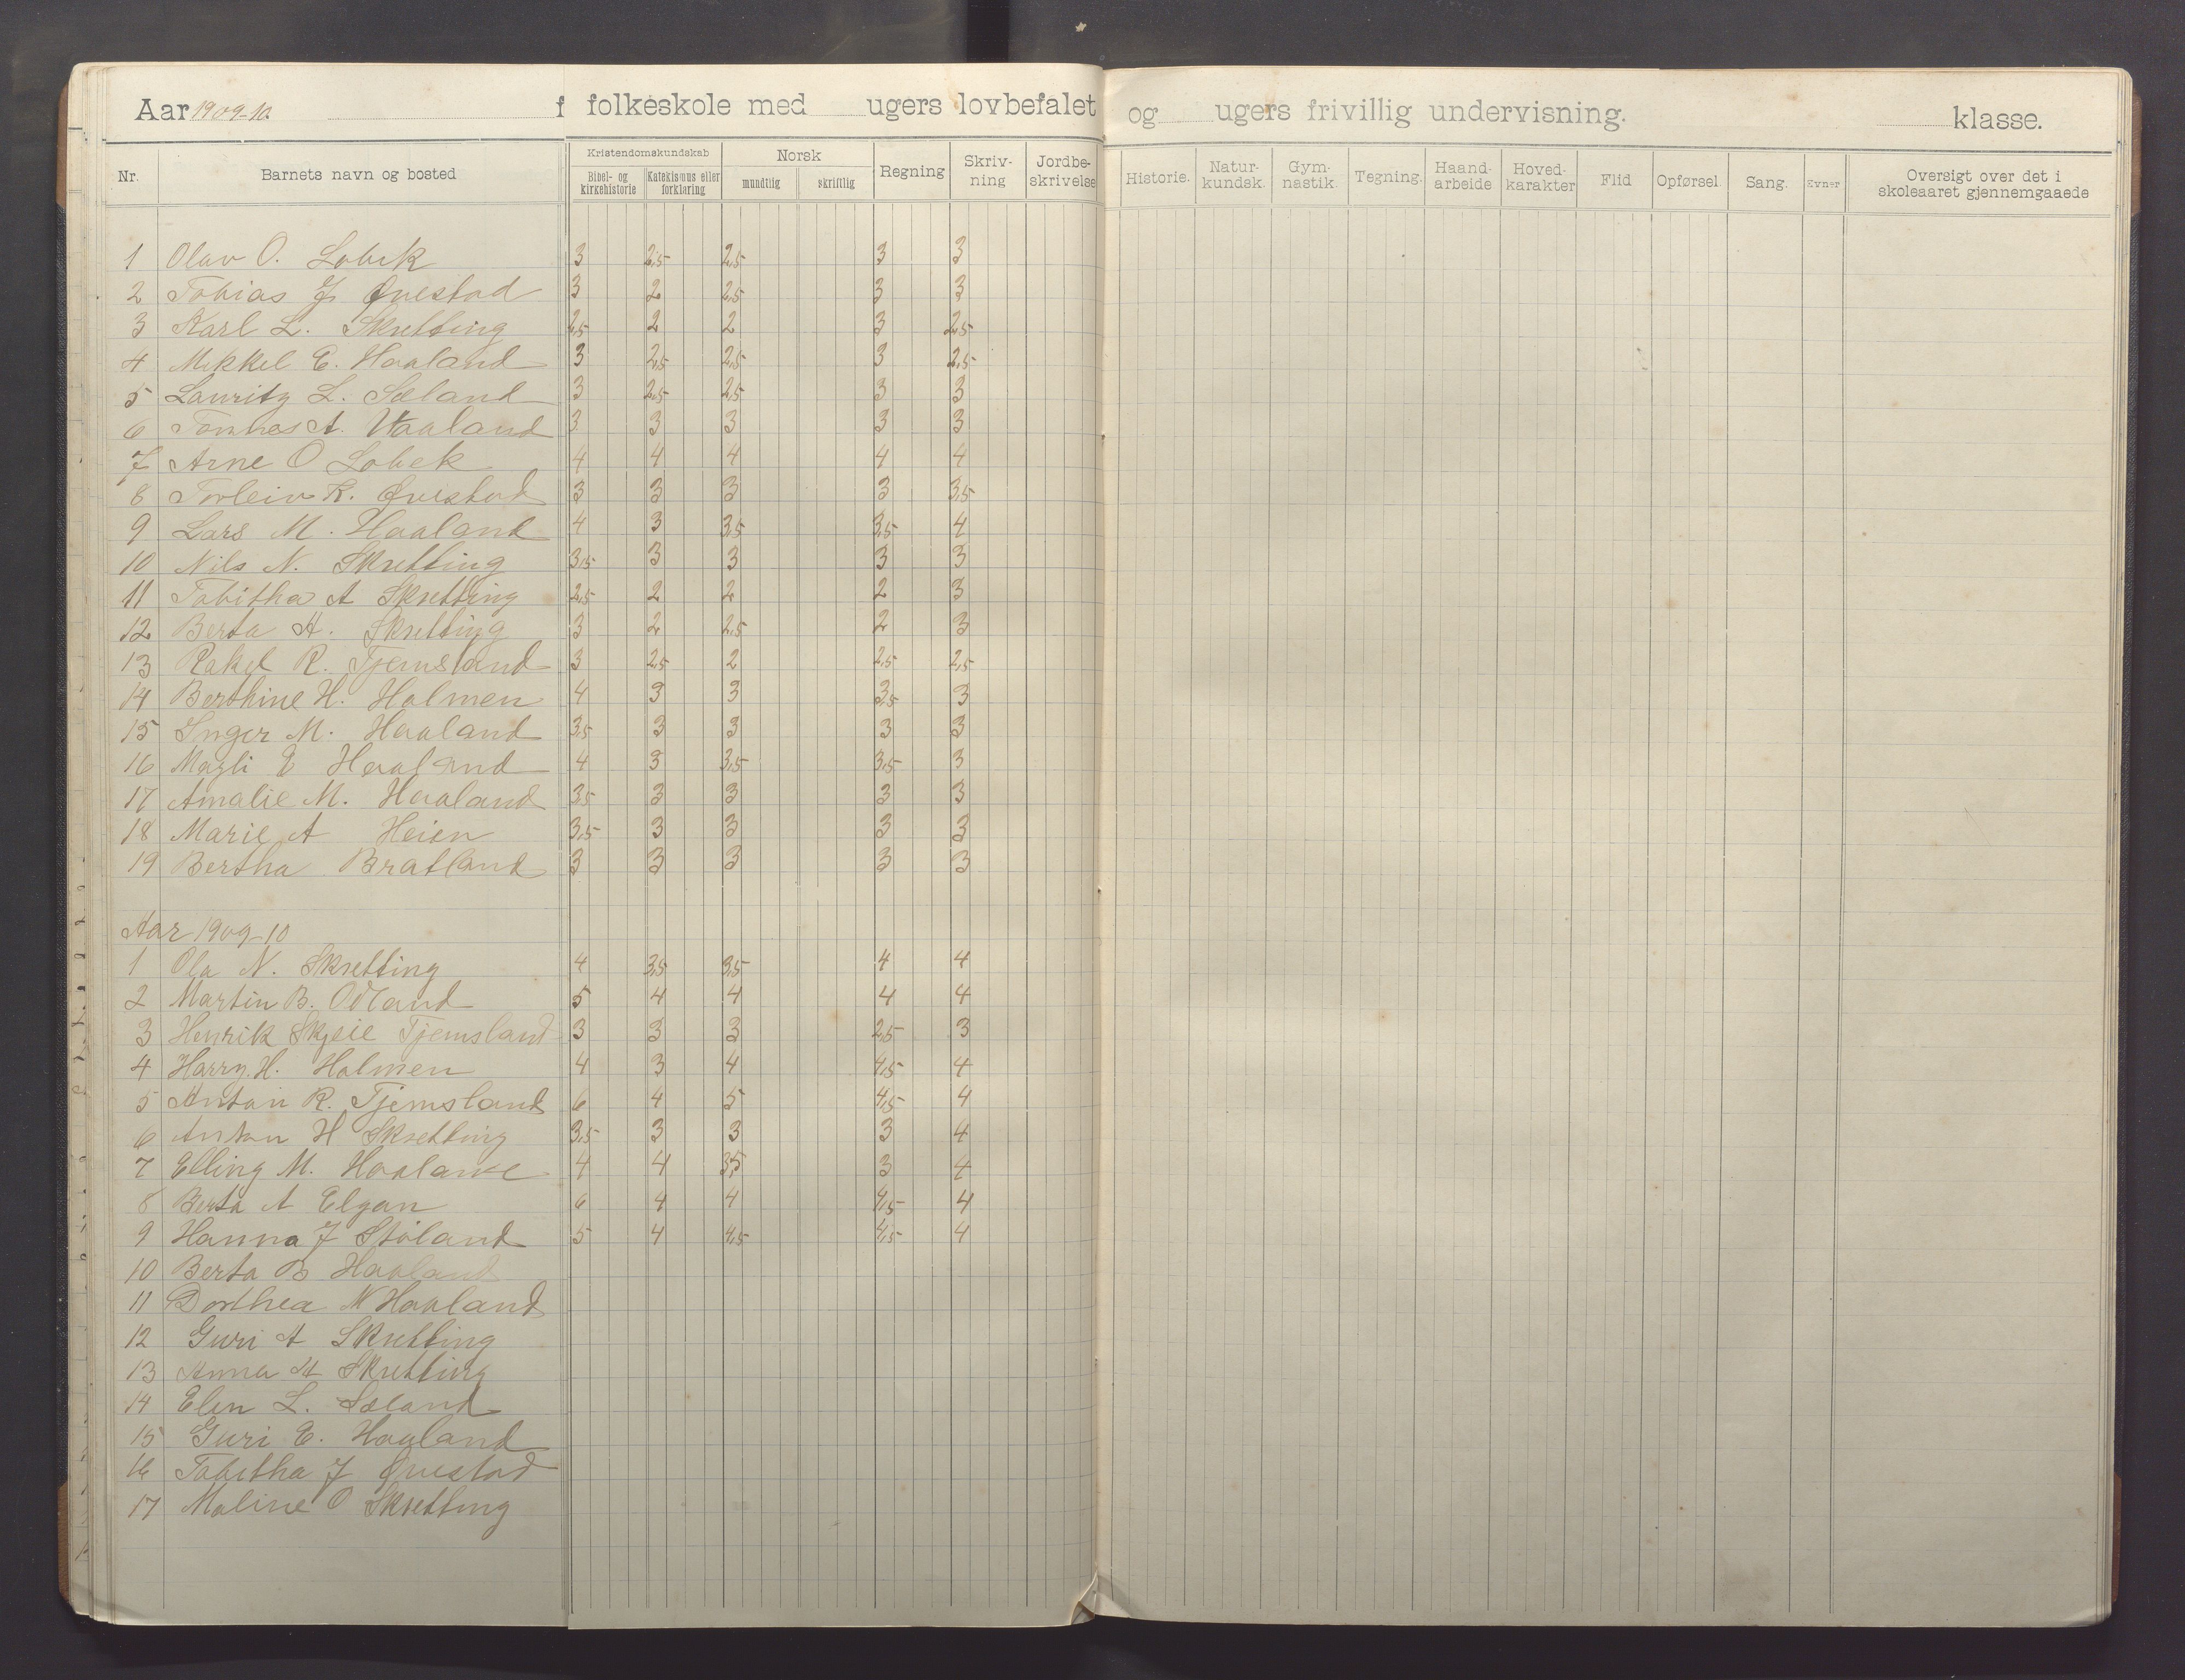 Aar 1909-10. f folkeskole med ugers lovbefalet og ugers frivillig undervisning. klasse.
Nr. Barnets navn og bosted Kristendomskundskab Bibel- og kirkehistorie Katekismus eller forklaring Norsk mundtlig skriftlig Regning Skriv-ning Jordbe-skrivelse Historie. Natur-kundsk. Gym-nastik. Tegning. Haand-arbeide Hoved-karakter Flid Opførsel. Sang. Evner Oversigt over det i skoleaaret gjennemgaaede
1 Olav O. Lobek 3 2,5 2,5 3 3
2 Tobias J Qvestad 3 2 2,5 3 3
3 Karl L. Skretting 2,5 2 2 3 2,5
4 Mikkel E. Haaland 3 2,5 2,5 3 2,5
5 Lauritz L. Sæland 3 2,5 2,5 3 3
6 Tønnes A. Haaland 3 3 3 3 3
7 Arne O Lobek 4 4 4 4 4
8 Torleiv R. Qvestad 3 3 3 3 3,5
9 Lars M. Haaland 4 3 3,5 3,5 4
10 Nils N. Skretting 3,5 3 3 3 3
11 Tabitha A Skretting 2,5 2 2 2 3
12 Berta H. Skretting 3 2 2,5 2 3
13 Rakel R. Tjemsland 3 2,5 2 2,5 2,5
14 Berthine H. Holmen 4 3 3 3,5 3
15 Inger M. Haaland 3,5 3 3 3 3
16 Magli E Haaland 4 3 3,5 3,5 3
17 Amalie M. Haaland 3,5 3 3 3 3
18 Marie A Heien 3,5 3 3 3 3
19 Bertha Bratland 3 3 3 3 3
Aar 1909-10
1 Ola N. Skretting 4 3,5 3,5 4 4
2 Martin B. Odland 5 4 4 4 4
3 Henrik Skjeie Tjemsland 3 3 3 2,5 3
4 Harry. H. Holmen 4 3 4 4,5 4
5 Anton R. Tjemsland 6 4 5 4,5 4
6 Anton H Skretting 3,5 3 3 3 4
7 Elling M. Haaland 4 4 3,5 3 4
8 Berta A Elgan 6 4 4 4,5 4
9 Hanna J Støland 5 4 4,5 4,5 4
10 Berta B Haaland
11 Dorthea N Haaland
12 Guri A Skretting
13 Anna H Skretting
14 Elen L. Sæland
15 Guri E. Haaland
16 Tabitha J Qvestad
17 Maline O Skretting